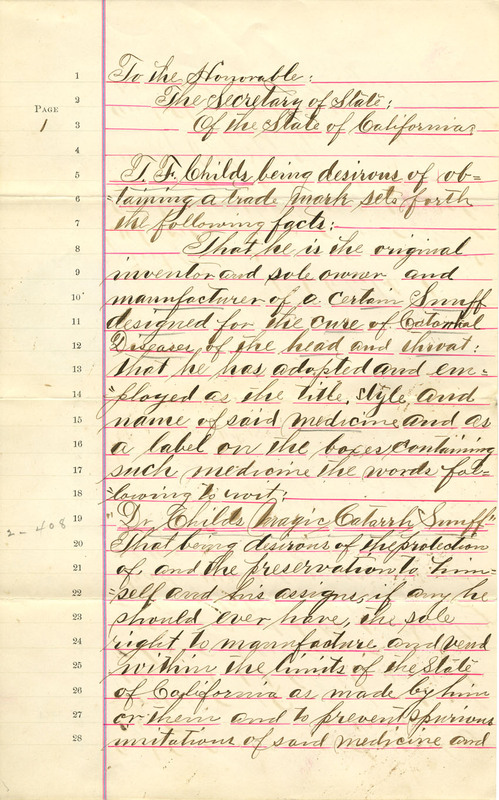 PAGE
1
1 To the Honorable:
2 The Secretary of State;
3 Of the State of California;
4
5 T. F. Childs being desirous of ob=
6 "taining a trade mark sets forth
7 the following facts:
8 That he is the original
9 inventor and sole owner and
10 manufacturer of a certain Snuff
11 designed for the cure of Catarrhal
12 Diseases of the head and throat:
13 that he has adopted and em=
14 "ployed as the title, style, and
15 name of said medicine and as
16 a label on the boxes containing
17 such medicine the words fol=
18 "lowing to wit:
19 "Dr. Childs Magic Catarrh Snuff"
2-408
20 That being desirous of the protection
21 of and the preservation to him=
22 "self and his assigns, if any he
23 should ever have, the sole
24 right to manufacture and vend
25 within the limits of the State
26 of California as made by him
27 or them and to prevent spurious
28 imitations of said medicine and